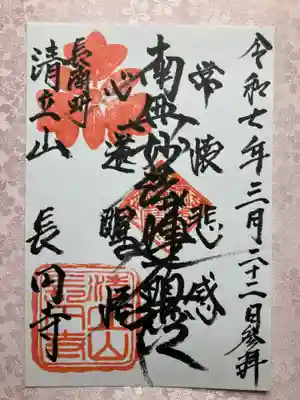 令和七年三月二十二日参拝
常懐悲感
南無妙法蓮華経
心遂醒悟
長南町
清立山
長円寺